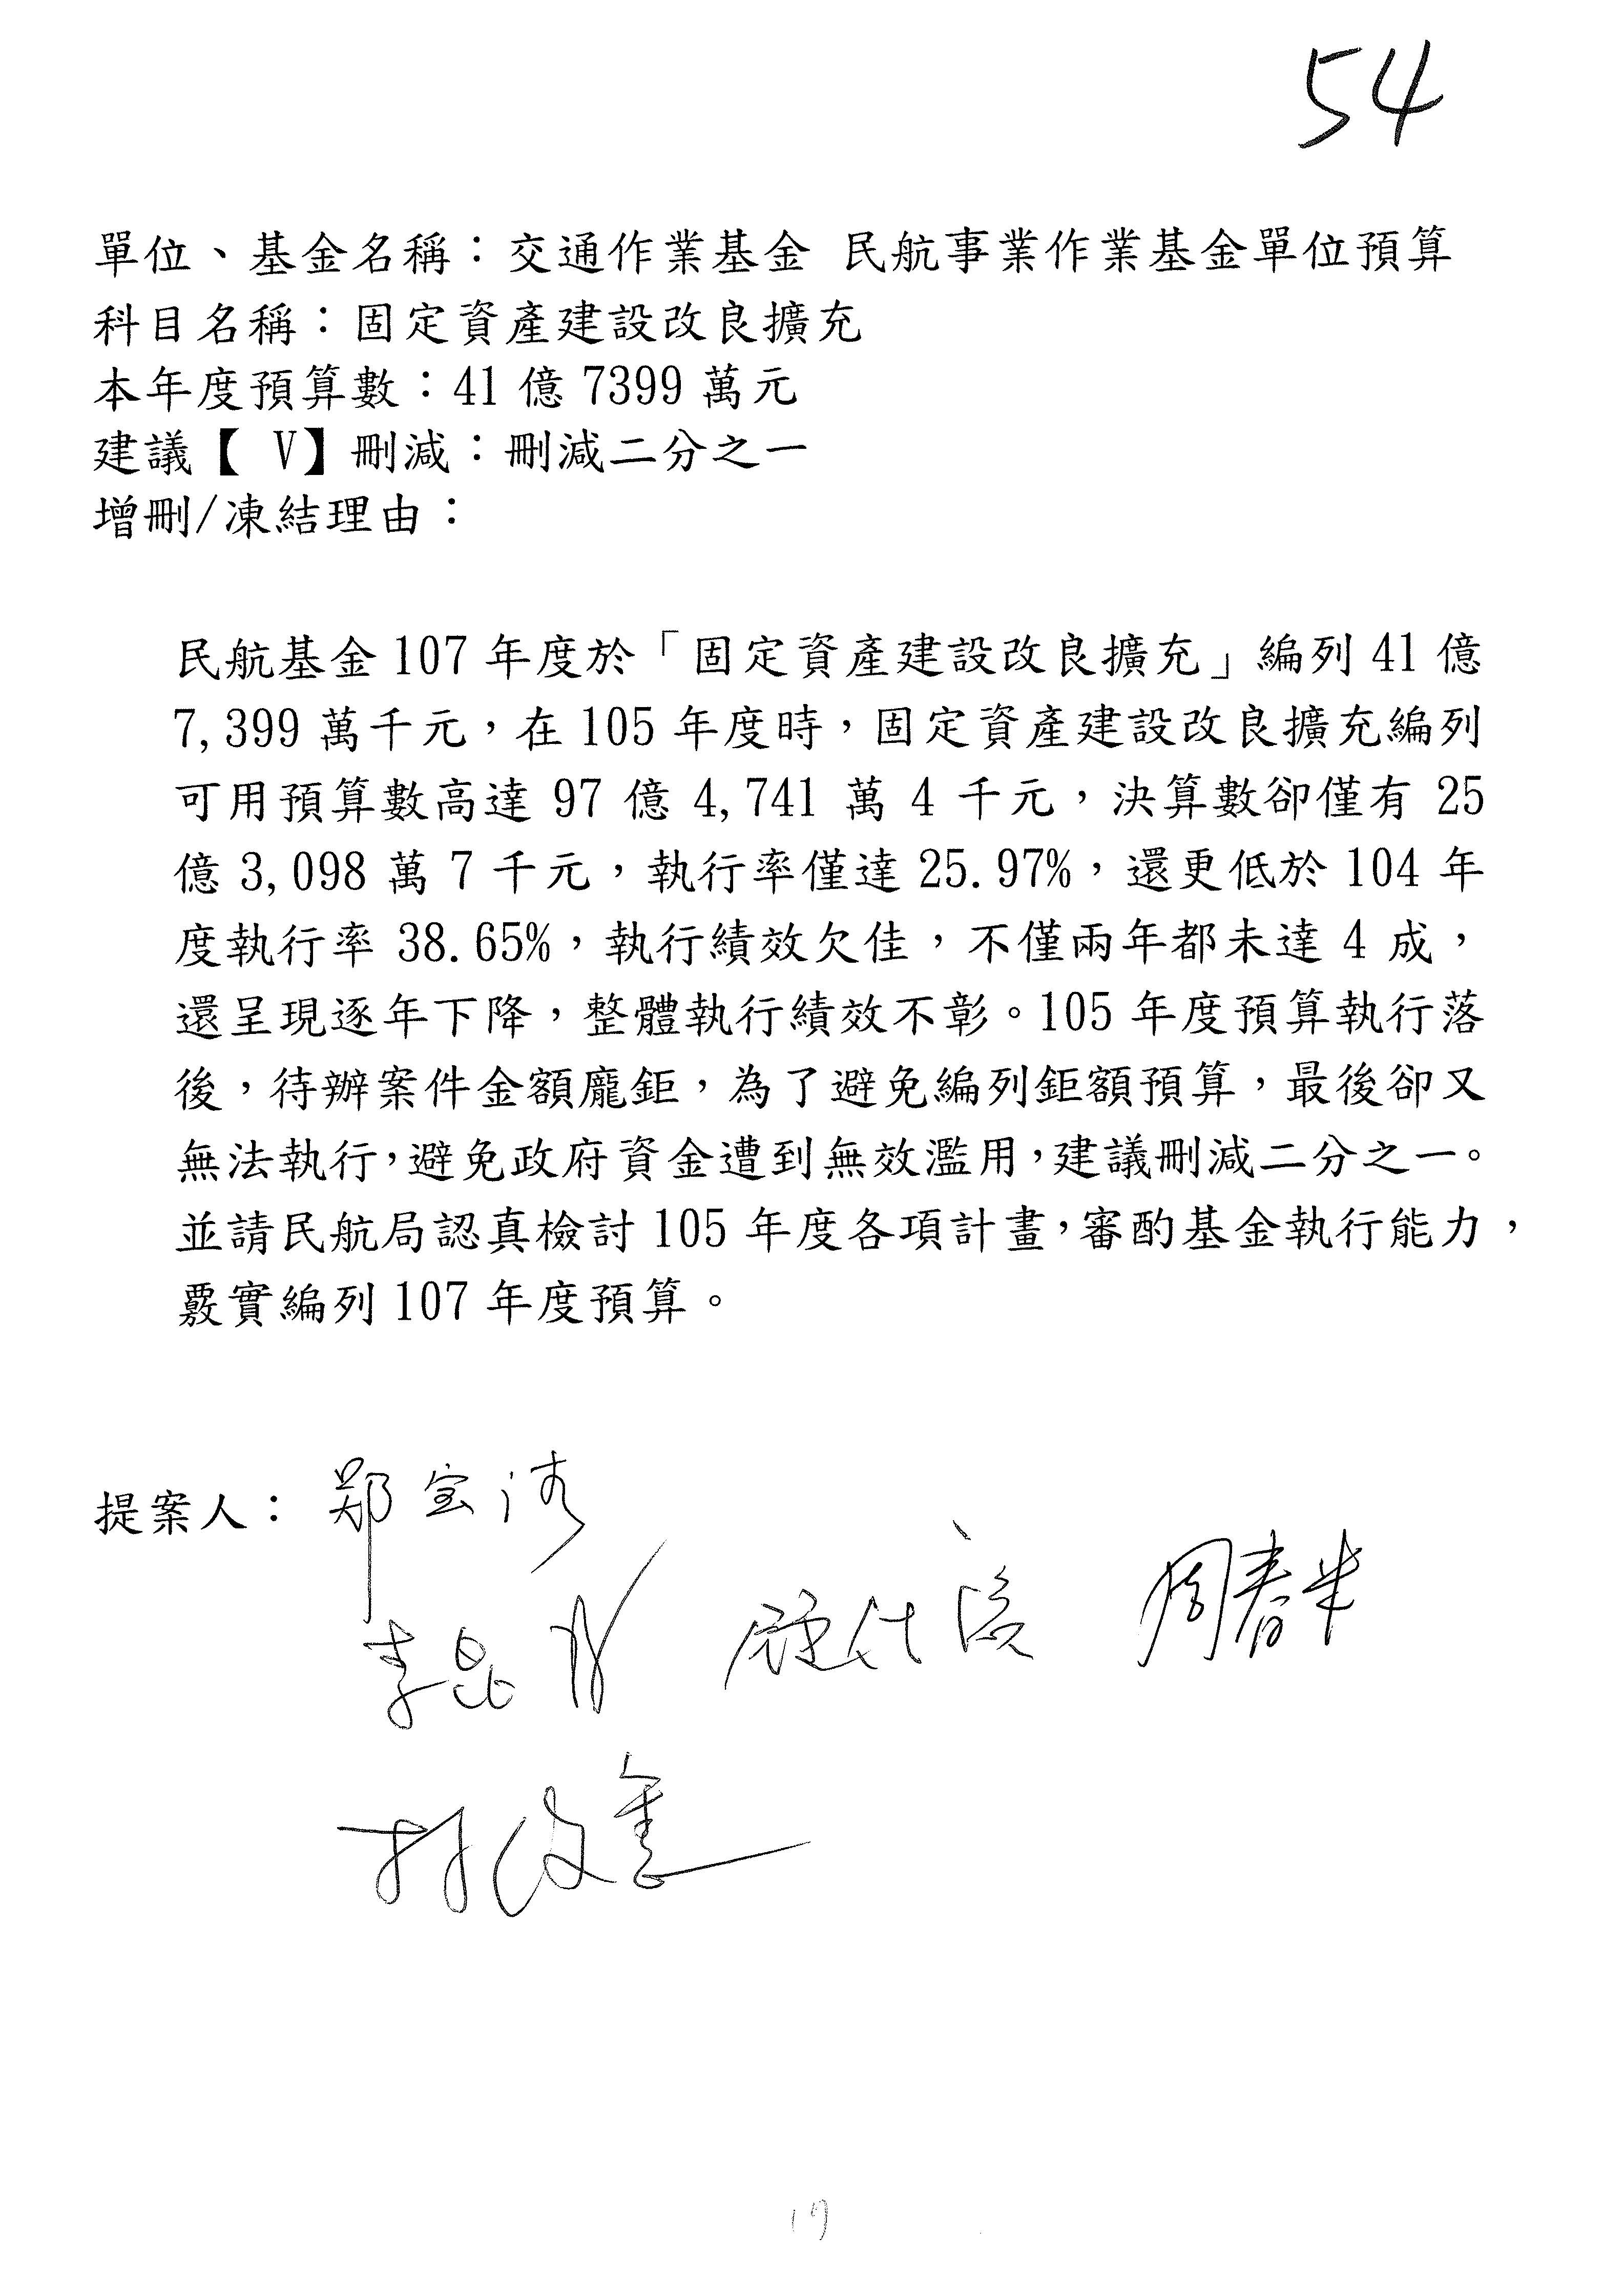 54
單位、基金名稱：交通作業基金 民航事業作業基金單位預算
科目名稱：固定資產建設改良擴充
本年度預算數：41 億 7399 萬元
建議【 V】刪減：刪減二分之一
增刪/凍結理由：
民航基金 107 年度於「固定資產建設改良擴充」編列 41 億
7,399 萬千元，在 105 年度時，固定資產建設改良擴充編列
可用預算數高達 97 億 4,741 萬 4 千元，決算數卻僅有 25
億 3,098 萬 7 千元，執行率僅達 25.97%，還更低於 104 年
度執行率 38.65%，執行績效欠佳，不僅兩年都未達 4 成，
還呈現逐年下降，整體執行績效不彰。105 年度預算執行落
後，待辦案件金額龐鉅，為了避免編列鉅額預算，最後卻又
無法執行，避免政府資金遭到無效濫用，建議刪減二分之一。
並請民航局認真檢討 105 年度各項計畫，審酌基金執行能力，
覈實編列 107 年度預算。
提案人： 鄭宝清
李昆澤 陳歐珀 周春米
林俊憲